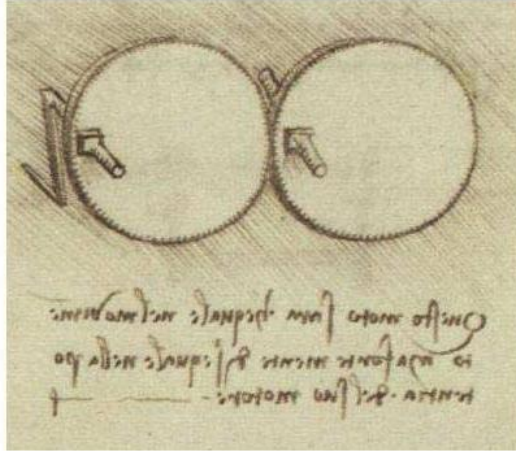 Questo moto fara equale nel movimen
to ma forte mente disequale nella po
tentia del suo motore